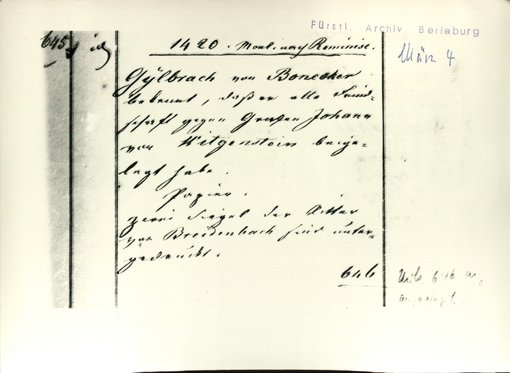 Fürstl. Archiv Berleburg
645
1420. Mont. nach Reminisc.
März 4
Gÿlbrach von Bonecker
bekennt, daß er alle Feind-
schaft gegen Grafen Johann
von Witgenstein beige-
legt habe.
Papier.
zwei Siegel der Ritter
von Breidenbach sind unter-
gedruckt.
646
646